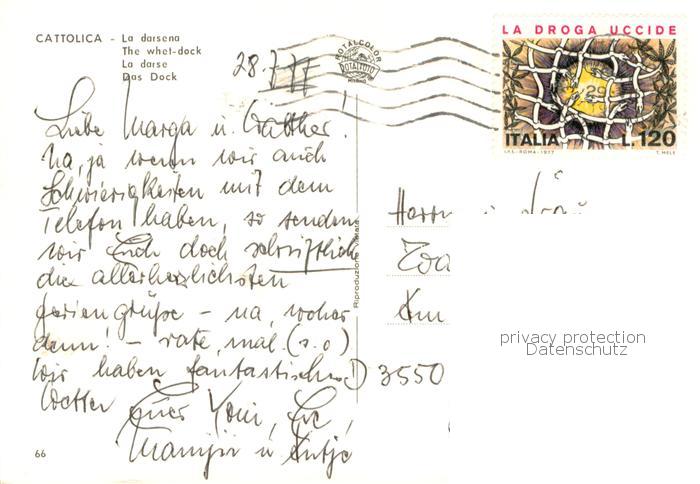 CATTOLICA - La darsena
The whet-dock
La darse
Das Dock
28.7.77
ROTALCOLOR
ROTALFOTO
MILANO
LA DROGA UCCIDE
ITALIA L.120
I.P.S.-ROMA-1977 T. MELE
Liebe Marga u. Walther!
Na, ja wenn wir auch
Schwierigkeiten mit dem
Telefon haben, so senden
wir Euch doch schriftlich
die allerherzlichsten
Feriengrüße - na, woher
denn! - rate mal. (s.o)
Wir haben fantastisches
Wetter Euer
u. Antje
Riproduzione vietata
Herrn u. Frau
D 3550
privacy protection
Datenschutz
66